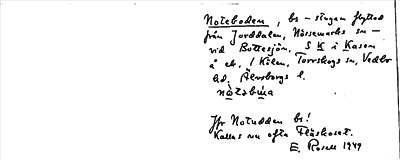 Noteboden, bs - stugan flyttad
från Jorddalen, Nössemarks sn -
vid Bottesjön, S K i Kasen
å ek. i Kölen, Torrskogs sn, Vedbo
hd. Älvsborgs l.
nòtəbúa
Jfr Notudden bs!
Kallas nu ofta Fläskoset.
E. Rosell 1949